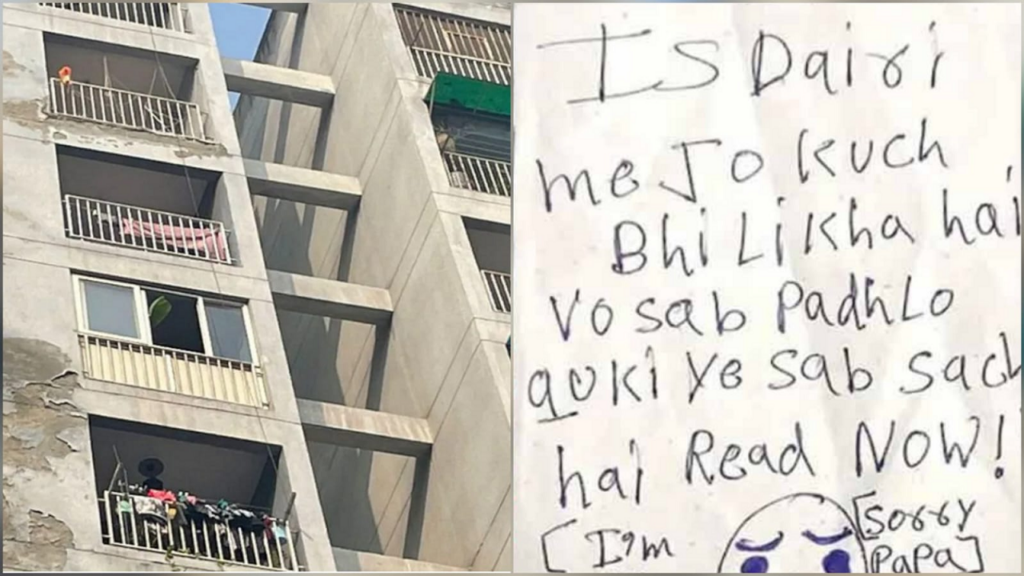 IS Dairi
me Jo kuch
Bhi Likha hai
Vo sab Padh Lo
quki ye sab sach
hai Read NOW!
[I'm
[Sorry
Papa]